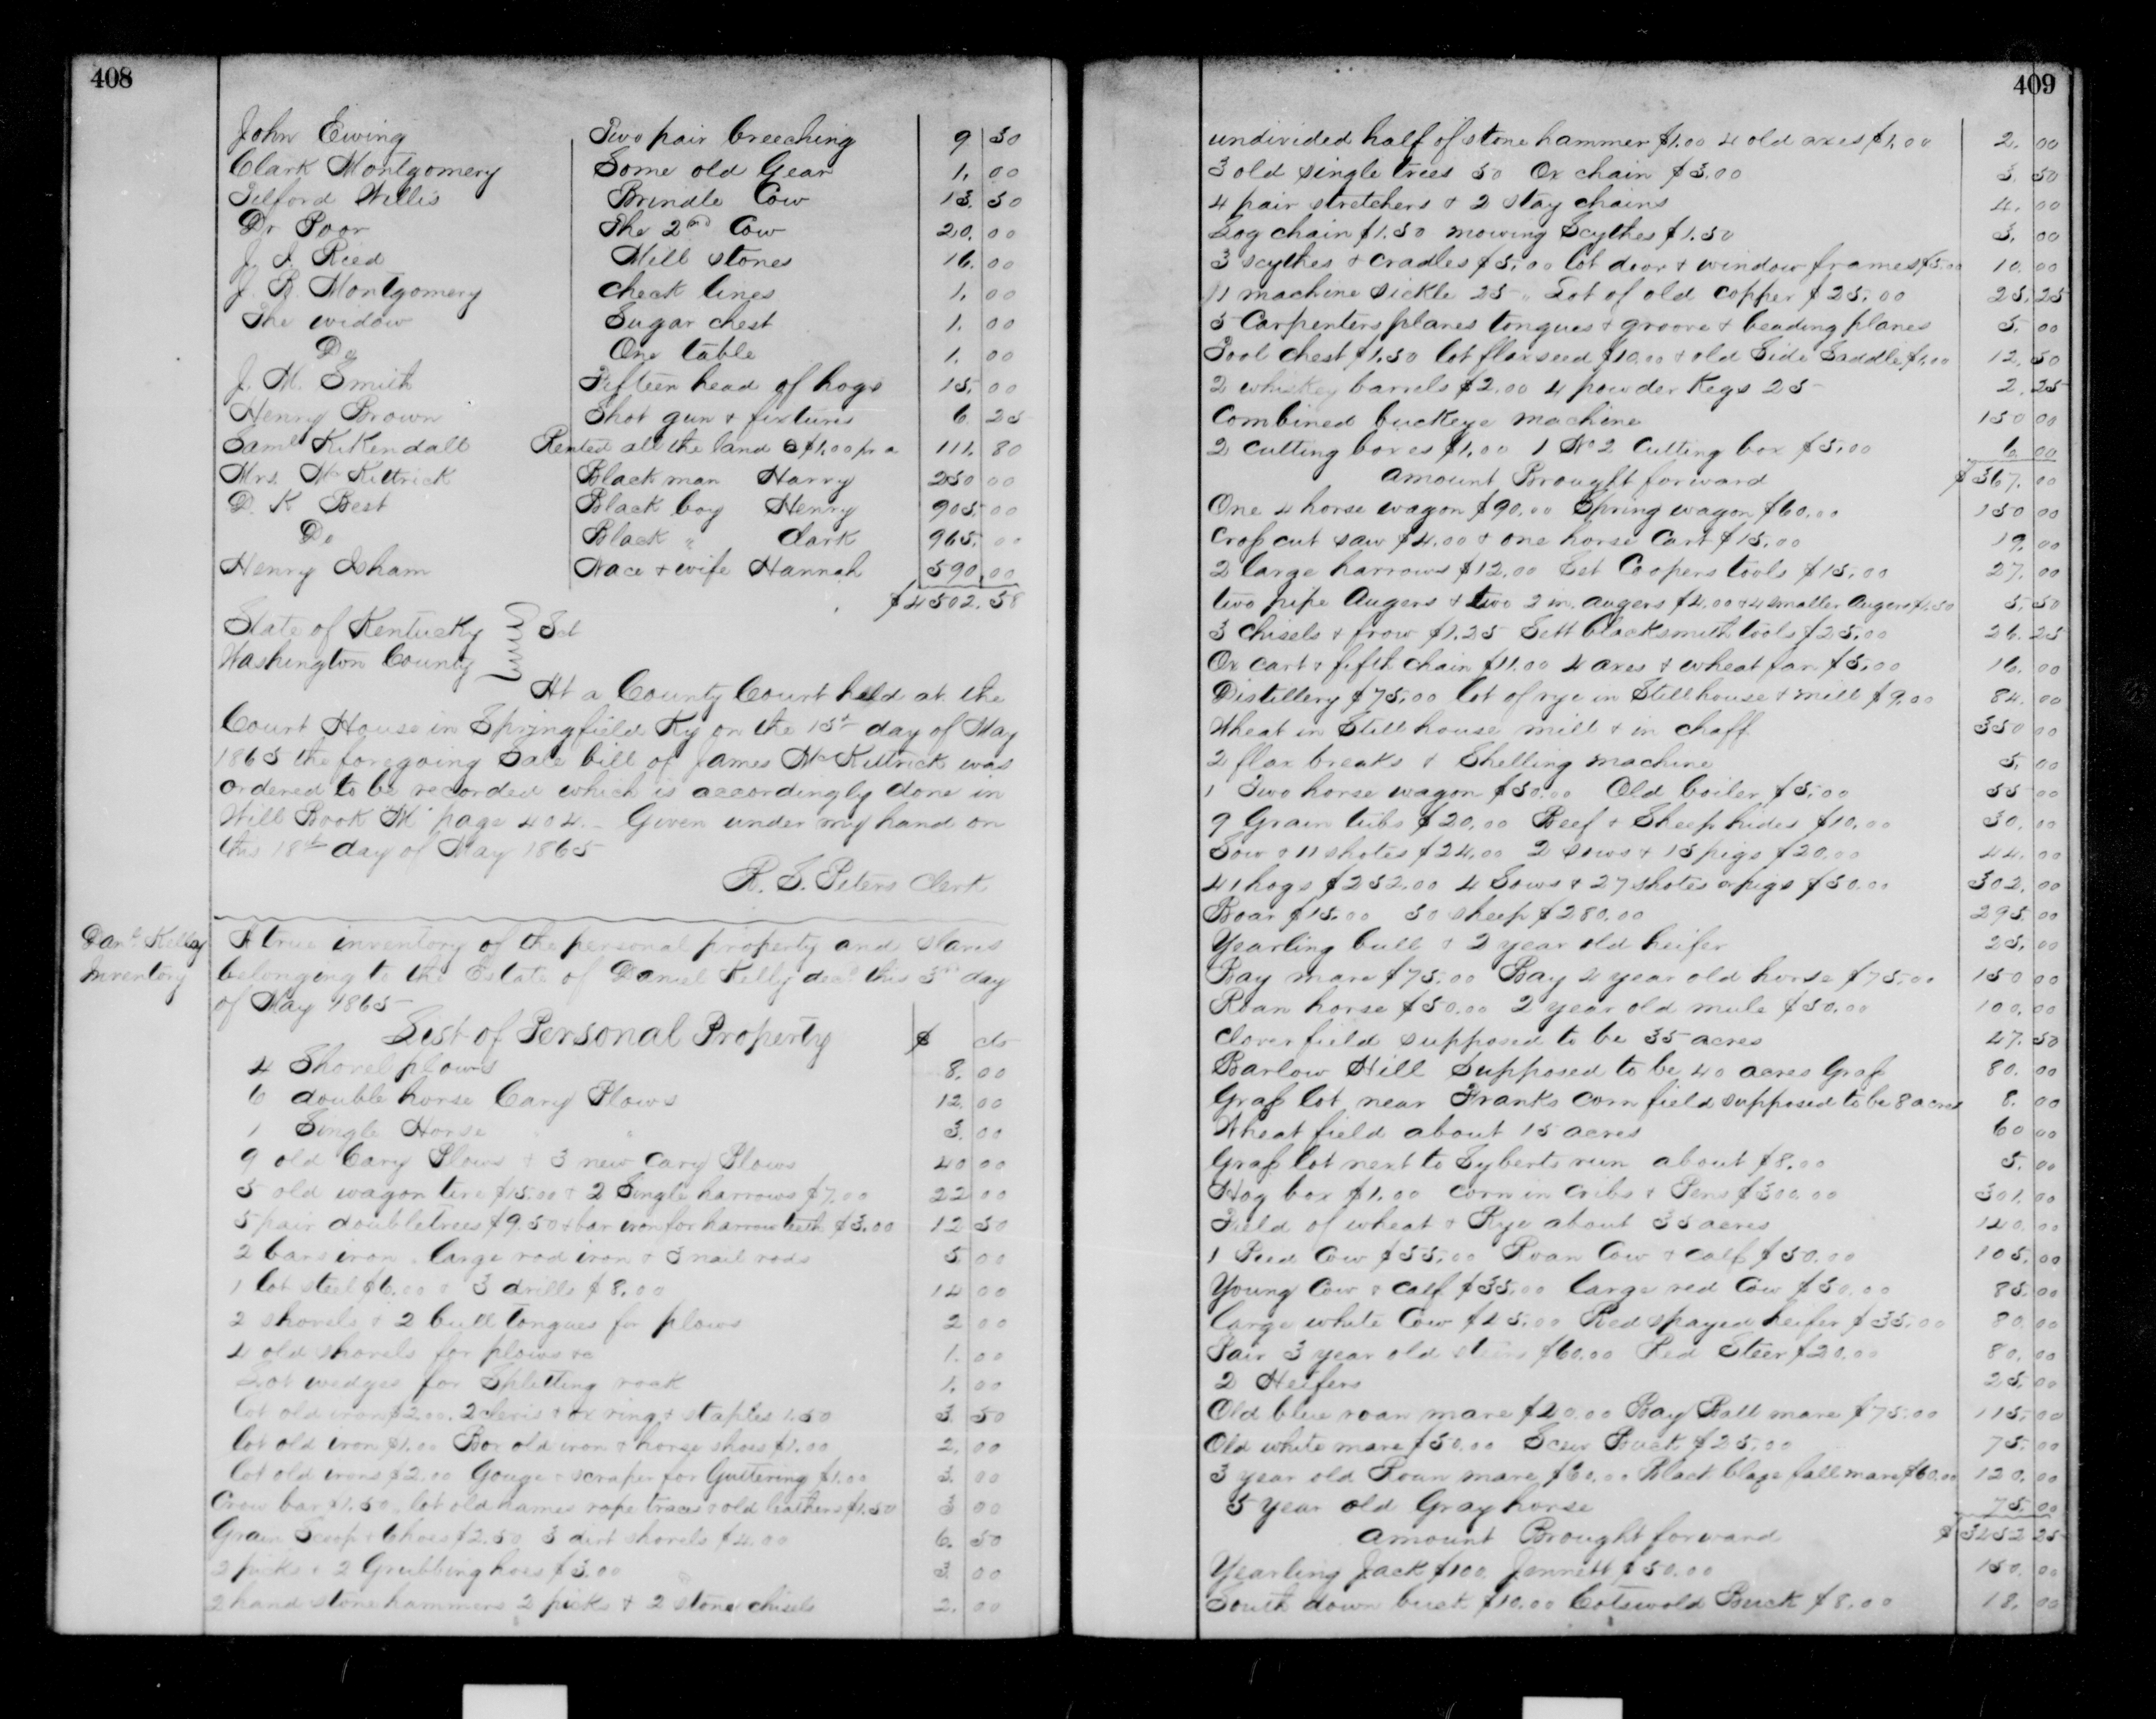 408
John Ewing Two pair breeching 9 50
Clark Montgomery Some old Gear 1. 00
Tilford Willis Brindle Cow 13. 50
Dr Poor The 2nd Cow 20. 00
J. J. Reed Mill stones 16. 00
J. R. Montgomery check lines 1. 00
The widow Sugar chest 1. 00
Do One table 1. 00
J. M. Smith Fifteen head of hogs 15. 00
Henry Brown Shot gun & fixtures 6. 25
Saml Kirkendall Rented all the land @ $1.00 pr a 111. 80
Mrs. McKittrick Black man Harry 250 00
D. K Best Black boy Henry 905 00
Do Black " Clark 965. 00
Henry Isham Nace & wife Hannah 590. 00
$4502. 58
State of Kentucky Sct
Washington County
At a County Court held at the
Court House in Springfield Ky on the 15th day of May
1865 the foregoing Sale bill of James McKittrick was
ordered to be recorded which is accordingly done in
Will Book M page 404. Given under my hand on
this 18th day of May 1865
R. S. Peters Clerk
Danl Kelly Inventory
A true inventory of the personal property and slaves
belonging to the Estate of Daniel Kelly decd this 3rd day
of May 1865
List of Personal Property $ cts
4 Shovel plows 8. 00
6 double horse Cary Plows 12. 00
1 Single Horse " 3. 00
9 old Cary Plows & 3 new Cary Plows 40 00
5 old wagon tire $15.00 & 2 Single harrows $7.00 22 00
5 pair doubletrees $9.50 & bar iron for harrow teeth $3.00 12 50
2 bars iron, large rod iron & 3 nail rods 5 00
1 lot steel $6.00 & 3 drills $8.00 14 00
2 shovels & 2 bull tongues for plows 2 00
4 old shovels for plows &c 1. 00
Lot wedges for Splitting rock 1. 00
lot old iron $2.00. 2 clevis & ox ring & staples 1.50 3. 50
lot old iron $1.00 Box old iron & horse shoes $1.00 2. 00
lot old irons $2.00 Gouge & scraper for Guttering $1.00 3. 00
Crow bar $1.50, lot old hames rope traces & old leathers $1.50 3 00
Grain Scoop & 6 hoes $2.50 3 dirt shovels $4.00 6. 50
2 picks & 2 Grubbing hoes $3.00 3 00
2 hand stone hammers 2 picks & 2 stone chisels 2. 00
409
undivided half of stone hammer $1.00 4 old axes $1.00 2. 00
3 old single trees 50 Ox chain $3.00 3. 50
4 pair stretchers & 2 stay chains 4. 00
Log chain $1.50 mowing Scythes $1.50 3. 00
3 scythes & cradles $5.00 lot door & window frames $5.00 10. 00
11 machine sickle 25 " Lot of old copper $25.00 25. 25
5 Carpenters planes tongues & groove & beading planes 5. 00
Tool chest $1.50 lot flaxseed $10.00 & old Side Saddle $1.00 12. 50
2 whiskey barrels $2.00 4 powder kegs 25 2. 25
Combined buckeye machine 150 00
2 cutting boxes $1.00 1 No 2 Cutting box $5.00 6. 00
amount Brought forward $367. 00
One 4 horse wagon $90.00 Spring wagon $60.00 150 00
Cross cut saw $4.00 & one horse Cart $15.00 19. 00
2 large harrows $12.00 Set Coopers tools $15.00 27. 00
two pipe Augers & two 2 in. augers $4.00 & 4 smaller Augers $1.50 5. 50
3 chisels & frow $1.25 Sett blacksmith tools $25.00 26. 25
Ox cart & fifth chain $11.00 4 axes & wheat fan $5.00 16. 00
Distillery $75.00 lot of rye in Stillhouse & mill $9.00 84. 00
Wheat in Still house mill & in chaff 350 00
2 flax breaks & Shelling machine 5. 00
1 Two horse wagon $50.00 Old boiler $5.00 55 00
9 Grain tubs $20.00 Beef & Sheep hides $10.00 30. 00
Sow & 11 shotes $24.00 2 sows & 15 pigs $20.00 44. 00
41 hogs $252.00 4 Sows & 27 shotes or pigs $50.00 302. 00
Boar $15.00 50 sheep $280.00 295. 00
Yearling bull & 2 year old heifer 25. 00
Bay mare $75.00 Bay 4 year old horse $75.00 150 00
Roan horse $50.00 2 year old mule $50.00 100. 00
Clover field supposed to be 35 acres 47. 50
Barlow Hill Supposed to be 40 acres Grass 80. 00
Grass lot near Franks corn field supposed to be 8 acres 8. 00
Wheat field about 15 acres 60 00
Grass lot next to Syberts run about $8.00 5. 00
Hog box $1.00 corn in cribs & Pens $300.00 301. 00
Field of wheat & Rye about 35 acres 140. 00
1 Pied Cow $55.00 Roan Cow & calf $50.00 105. 00
Young Cow & calf $35.00 large red Cow $50.00 85. 00
large white Cow $45.00 Red spayed heifer $35.00 80. 00
Pair 3 year old steers $60.00 Red Steer $20.00 80. 00
2 Heifers 25. 00
Old blue roan mare $40.00 Bay Ball mare $75.00 115. 00
Old white mare $50.00 Buck $25.00 75. 00
3 year old Roan mare $60.00 Black blaze fall mare $60.00 120. 00
5 year old Gray horse 75. 00
amount Brought forward $3452 25
Yearling Jack $100. Jennett $50.00 150. 00
South down buck $10.00 Cotswold Buck $8.00 18. 00